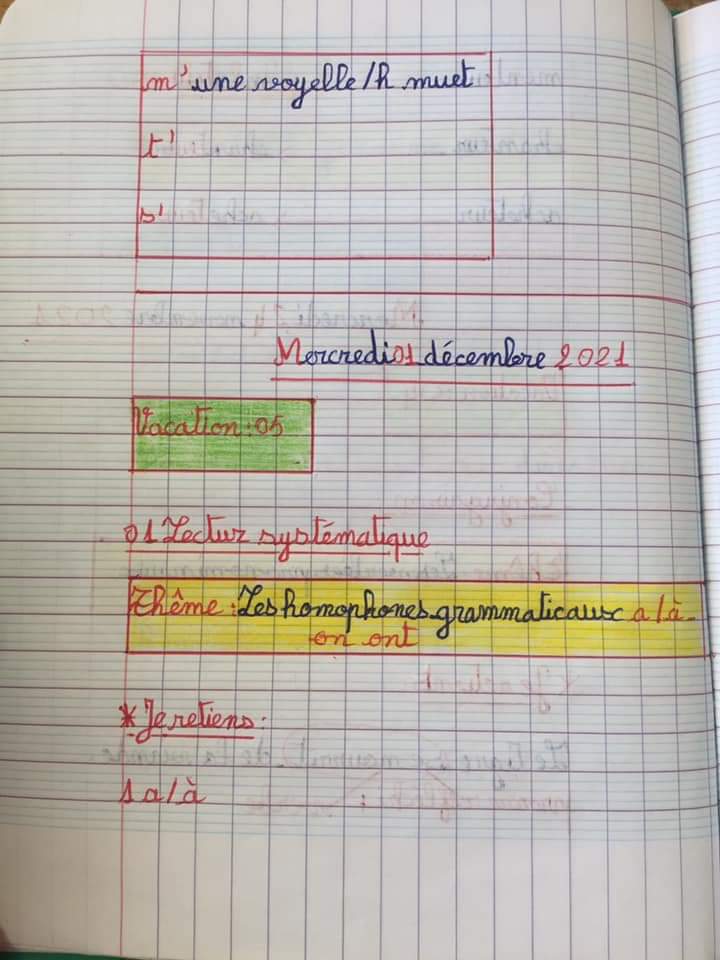 m' une voyelle/h muet
t'
s'
Mercredi 01 décembre 2021
Vacation : 05
01 Lectur systématique
Thême : Les homophones grammaticaux a/à
on ont
* Je retiens :
1 a/à